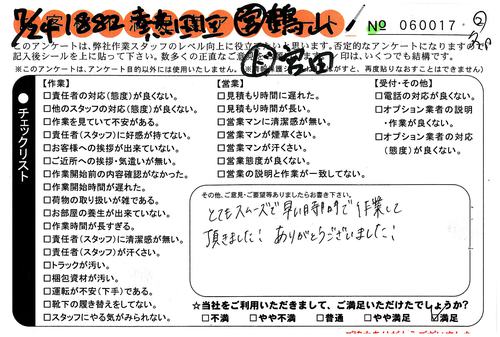 7/24
No 060017
このアンケートは、弊社作業スタッフのレベル向上に役立
否定的なアンケートになりますので
記入後シールを上に貼って下さい。数多くの正直なご意見
印は、いくつでも結構です。
※このアンケートは、アンケート目的以外には使用いたしません。
再度貼りなおすことはできません)
チェックリスト
【作業】
□責任者の対応(態度)が良くない。
□他のスタッフの対応(態度)が良くない。
□作業を見ていて不安がある。
□責任者(スタッフ)に好感が持てない。
□お客様への挨拶が出来ていない。
□ご近所への挨拶・気遣いが無い。
□作業開始前の内容確認がなかった。
□作業開始時間が遅れた。
□荷物の取り扱いが雑である。
□お部屋の養生が出来ていない。
□作業時間が長すぎる。
□責任者(スタッフ)に清潔感が無い。
□責任者(スタッフ)が汗くさい。
□トラックが汚い。
□梱包資材が汚い。
□運転が不安(下手)である。
□靴下の履き替えをしてない。
□スタッフにやる気がみられない。
【営業】
□見積もり時間に遅れた。
□見積もり時間が長い。
□営業マンに清潔感が無い。
□営業マンが煙草くさい。
□営業マンが汗くさい。
□営業態度が良くない。
□営業の説明と作業が一致してない。
【受付・その他】
□電話の対応が良くない。
□オプション業者の説明
・作業が良くない。
□オプション業者の対応
(態度)が良くない。
その他、ご意見・ご要望等ありましたらお書き下さい。
とてもスムーズで早い時間で作業して
頂きました! ありがとうございました!
☆当社をご利用いただきまして、ご満足いただけたでしょうか?
□不満 □やや不満 □普通 □やや満足 ☑満足